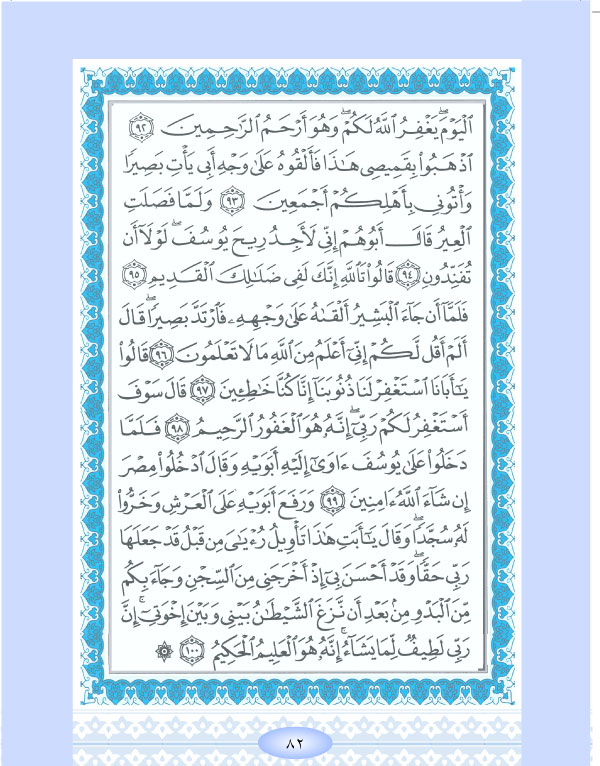 ٱلۡيَوۡمَۖ يَغۡفِرُ ٱللَّهُ لَكُمۡۖ وَهُوَ أَرۡحَمُ ٱلرَّٰحِمِينَ ٩٢
ٱذۡهَبُواْ بِقَمِيصِي هَٰذَا فَأَلۡقُوهُ عَلَىٰ وَجۡهِ أَبِي يَأۡتِ بَصِيرٗا
وَأۡتُونِي بِأَهۡلِكُمۡ أَجۡمَعِينَ ٩٣ وَلَمَّا فَصَلَتِ
ٱلۡعِيرُ قَالَ أَبُوهُمۡ إِنِّي لَأَجِدُ رِيحَ يُوسُفَۖ لَوۡلَآ أَن
تُفَنِّدُونِ ٩٤ قَالُواْ تَٱللَّهِ إِنَّكَ لَفِي ضَلَٰلِكَ ٱلۡقَدِيمِ ٩٥
فَلَمَّآ أَن جَآءَ ٱلۡبَشِيرُ أَلۡقَىٰهُ عَلَىٰ وَجۡهِهِۦ فَٱرۡتَدَّ بَصِيرٗاۖ قَالَ
أَلَمۡ أَقُل لَّكُمۡ إِنِّيٓ أَعۡلَمُ مِنَ ٱللَّهِ مَا لَا تَعۡلَمُونَ ٩٦ قَالُواْ
يَٰٓأَبَانَا ٱسۡتَغۡفِرۡ لَنَا ذُنُوبَنَآ إِنَّا كُنَّا خَٰطِـِٔينَ ٩٧ قَالَ سَوۡفَ
أَسۡتَغۡفِرُ لَكُمۡ رَبِّيٓۖ إِنَّهُۥ هُوَ ٱلۡغَفُورُ ٱلرَّحِيمُ ٩٨ فَلَمَّا
دَخَلُواْ عَلَىٰ يُوسُفَ ءَاوَىٰٓ إِلَيۡهِ أَبَوَيۡهِ وَقَالَ ٱدۡخُلُواْ مِصۡرَ
إِن شَآءَ ٱللَّهُ ءَامِنِينَ ٩٩ وَرَفَعَ أَبَوَيۡهِ عَلَى ٱلۡعَرۡشِ وَخَرُّواْ
لَهُۥ سُجَّدٗاۖ وَقَالَ يَٰٓأَبَتِ هَٰذَا تَأۡوِيلُ رُءۡيَٰيَ مِن قَبۡلُ قَدۡ جَعَلَهَا
رَبِّي حَقّٗاۖ وَقَدۡ أَحۡسَنَ بِيٓ إِذۡ أَخۡرَجَنِي مِنَ ٱلسِّجۡنِ وَجَآءَ بِكُم
مِّنَ ٱلۡبَدۡوِ مِنۢ بَعۡدِ أَن نَّزَغَ ٱلشَّيۡطَٰنُ بَيۡنِي وَبَيۡنَ إِخۡوَتِيٓۚ إِنَّ
رَبِّي لَطِيفٞ لِّمَا يَشَآءُۚ إِنَّهُۥ هُوَ ٱلۡعَلِيمُ ٱلۡحَكِيمُ ١٠٠
٨٢